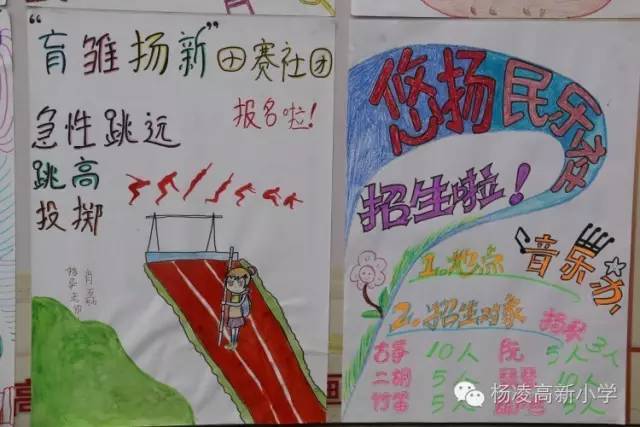 "育雏扬新"田赛社团
报名啦!
急性跳远
跳高
投掷
肖磊
悠扬民乐
招生啦!
1.地点 音乐办
2.招生对象 扬琴
古筝 10人 阮 5人 3人
二胡 5人 10人
竹笛 5人 5人
杨凌高新小学